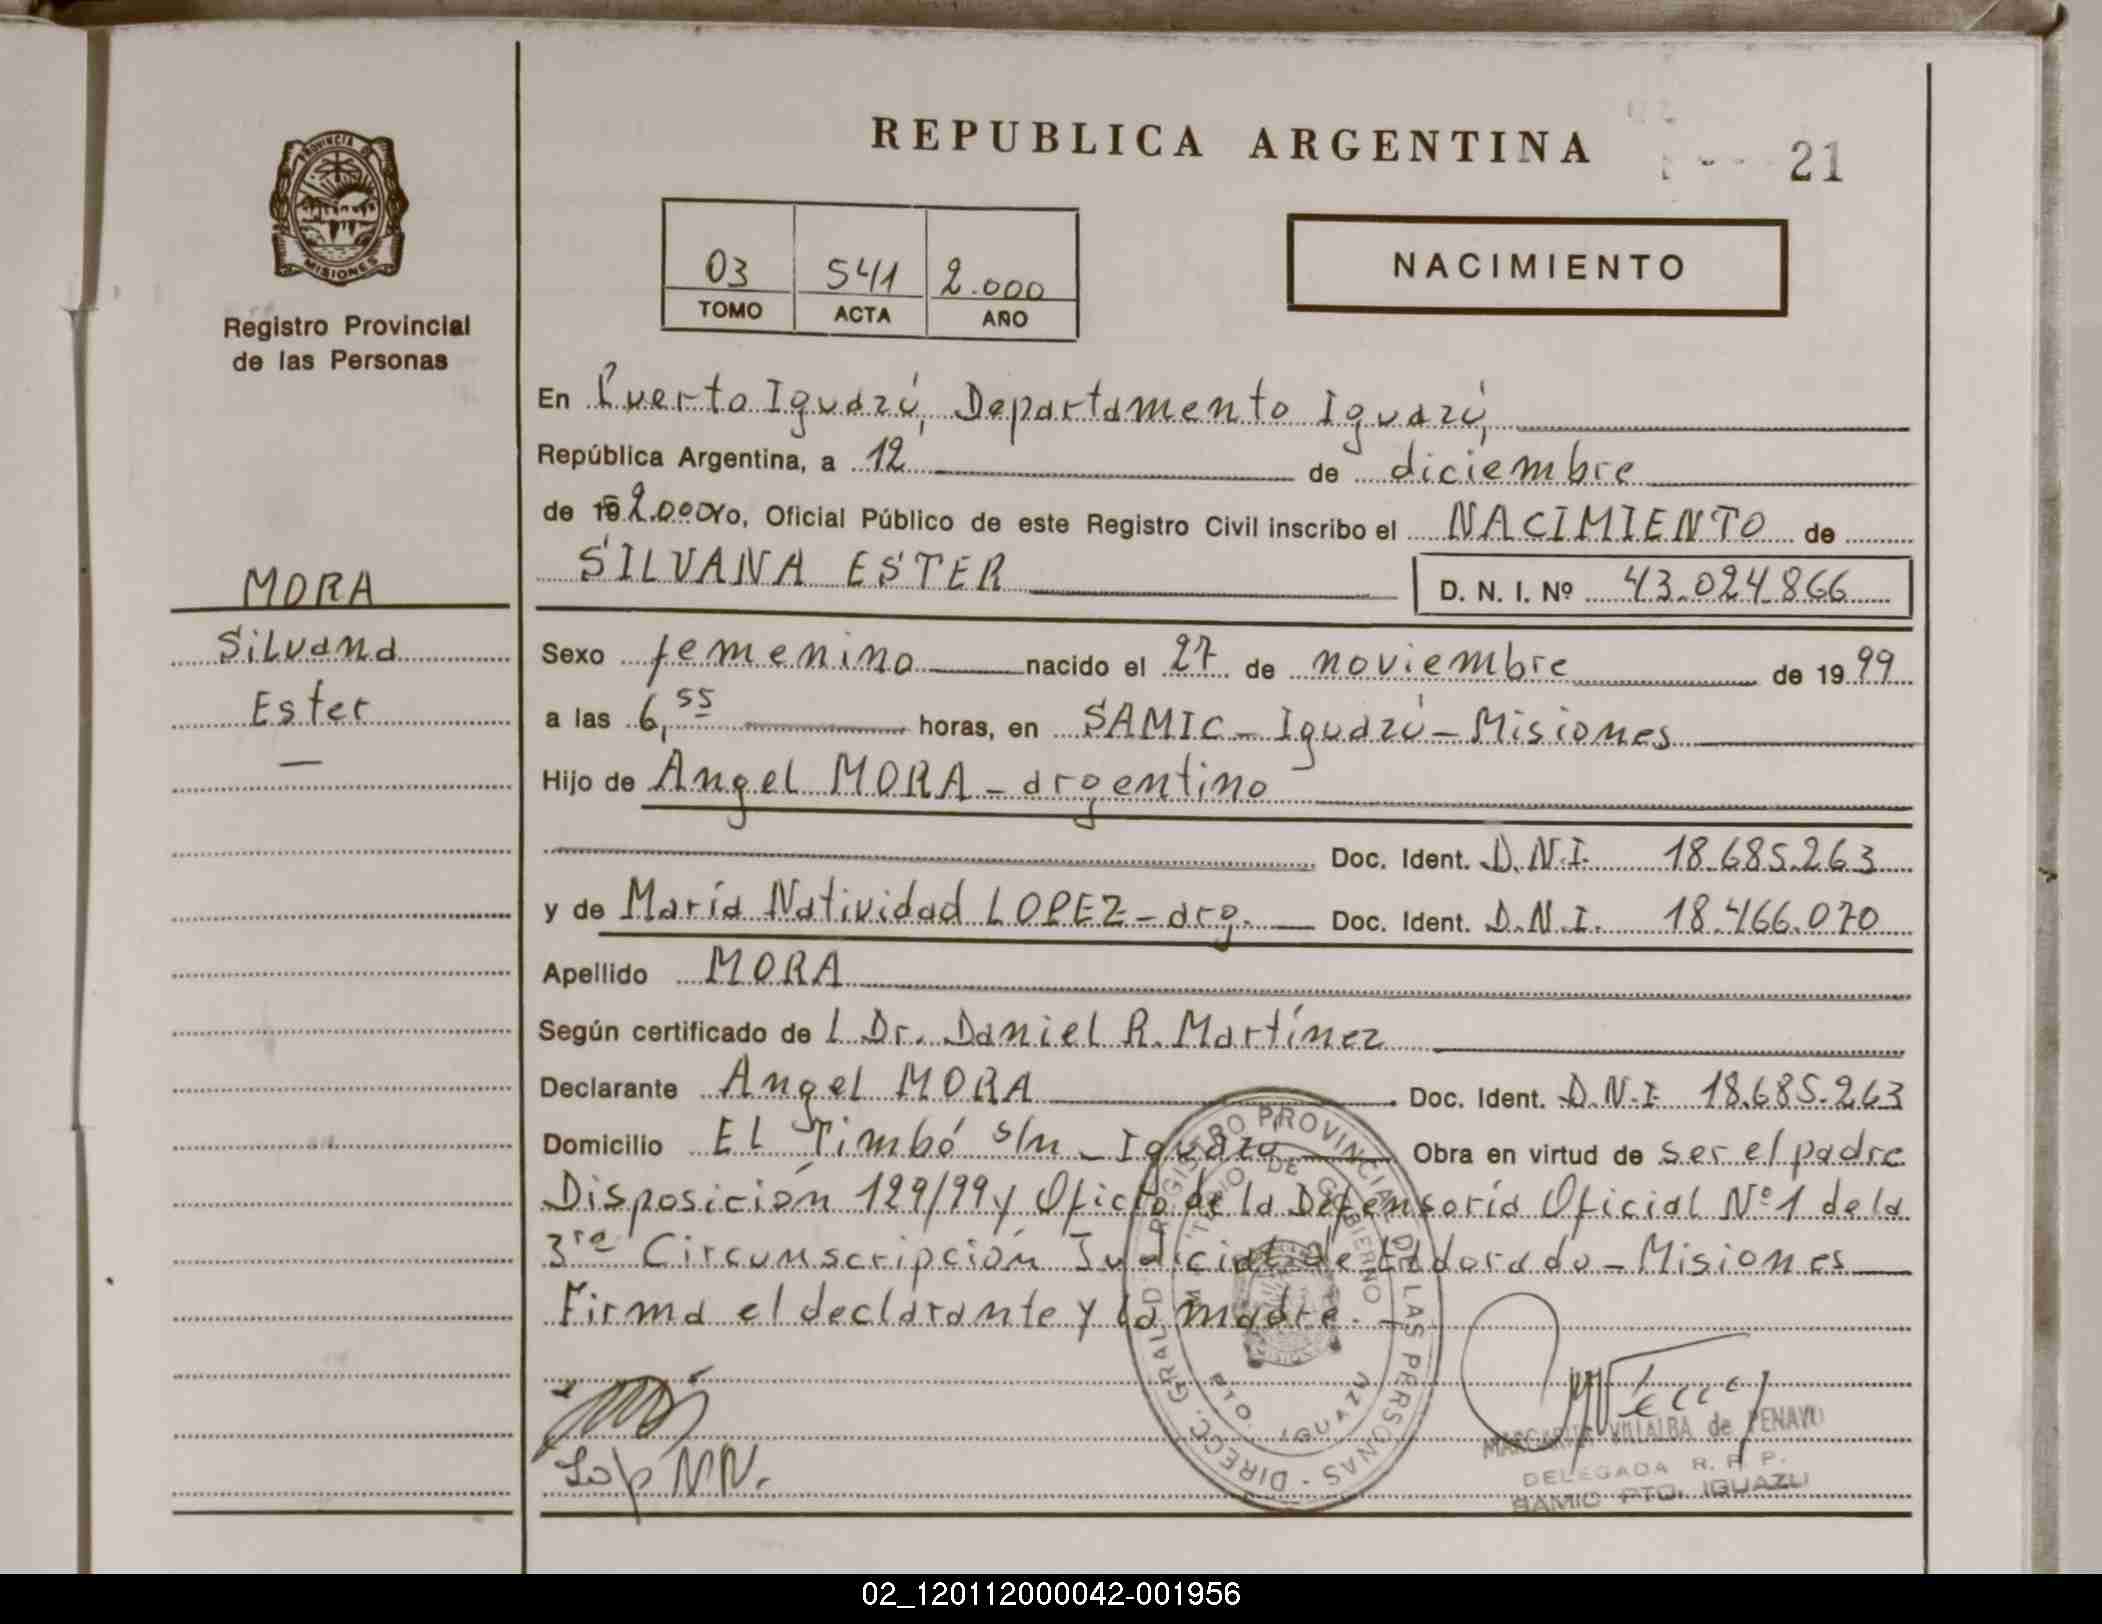 REPUBLICA ARGENTINA
21
PROVINCIA DE
MISIONES
Registro Provincial
de las Personas
03 541 2.000
TOMO ACTA AÑO
NACIMIENTO
En Puerto Iguazú, Departamento Iguazú,
República Argentina, a 12 de diciembre
de 19 2.000 Yo, Oficial Público de este Registro Civil inscribo el NACIMIENTO de
SILVANA ESTER
D. N. I. Nº 43.024.866
MORA
Silvana
Ester
Sexo femenino nacido el 27 de noviembre de 19 99
a las 6,55 horas, en SAMIC - Iguazú - Misiones
Hijo de Angel MORA - argentino
Doc. Ident. D.N.I. 18.685.263
y de María Natividad LOPEZ - arg. Doc. Ident. D.N.I. 18.766.070
Apellido MORA
Según certificado de l Dr. Daniel R. Martínez
Declarante Angel MORA Doc. Ident. D.N.I 18.685.263
Domicilio El Timbó s/n - Iguazú Obra en virtud de ser el padre
Disposición 129/99 y Oficio de la Defensoría Oficial Nº 1 de la
3ra Circunscripción Judicial de Eldorado - Misiones
Firma el declarante y la madre.
DIRECC. GRAL. D. REGISTRO PROVINCIAL DE LAS PERSONAS
DE GOBIERNO
PTO. IGUAZU
Lop NN.
MARGARITA VILLALBA de PENAYO
DELEGADA R. P. P.
SAMIC PTO. IGUAZU
02_120112000042-001956